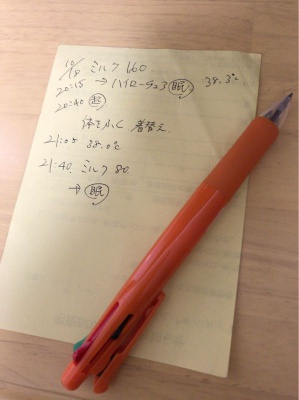 10/18 ミルク 160
20:15 → ハイローチェア 眠 38.3℃
20:40 起
体をふく 着替え
21:05 38.0℃
21:40 ミルク 80
→ 眠